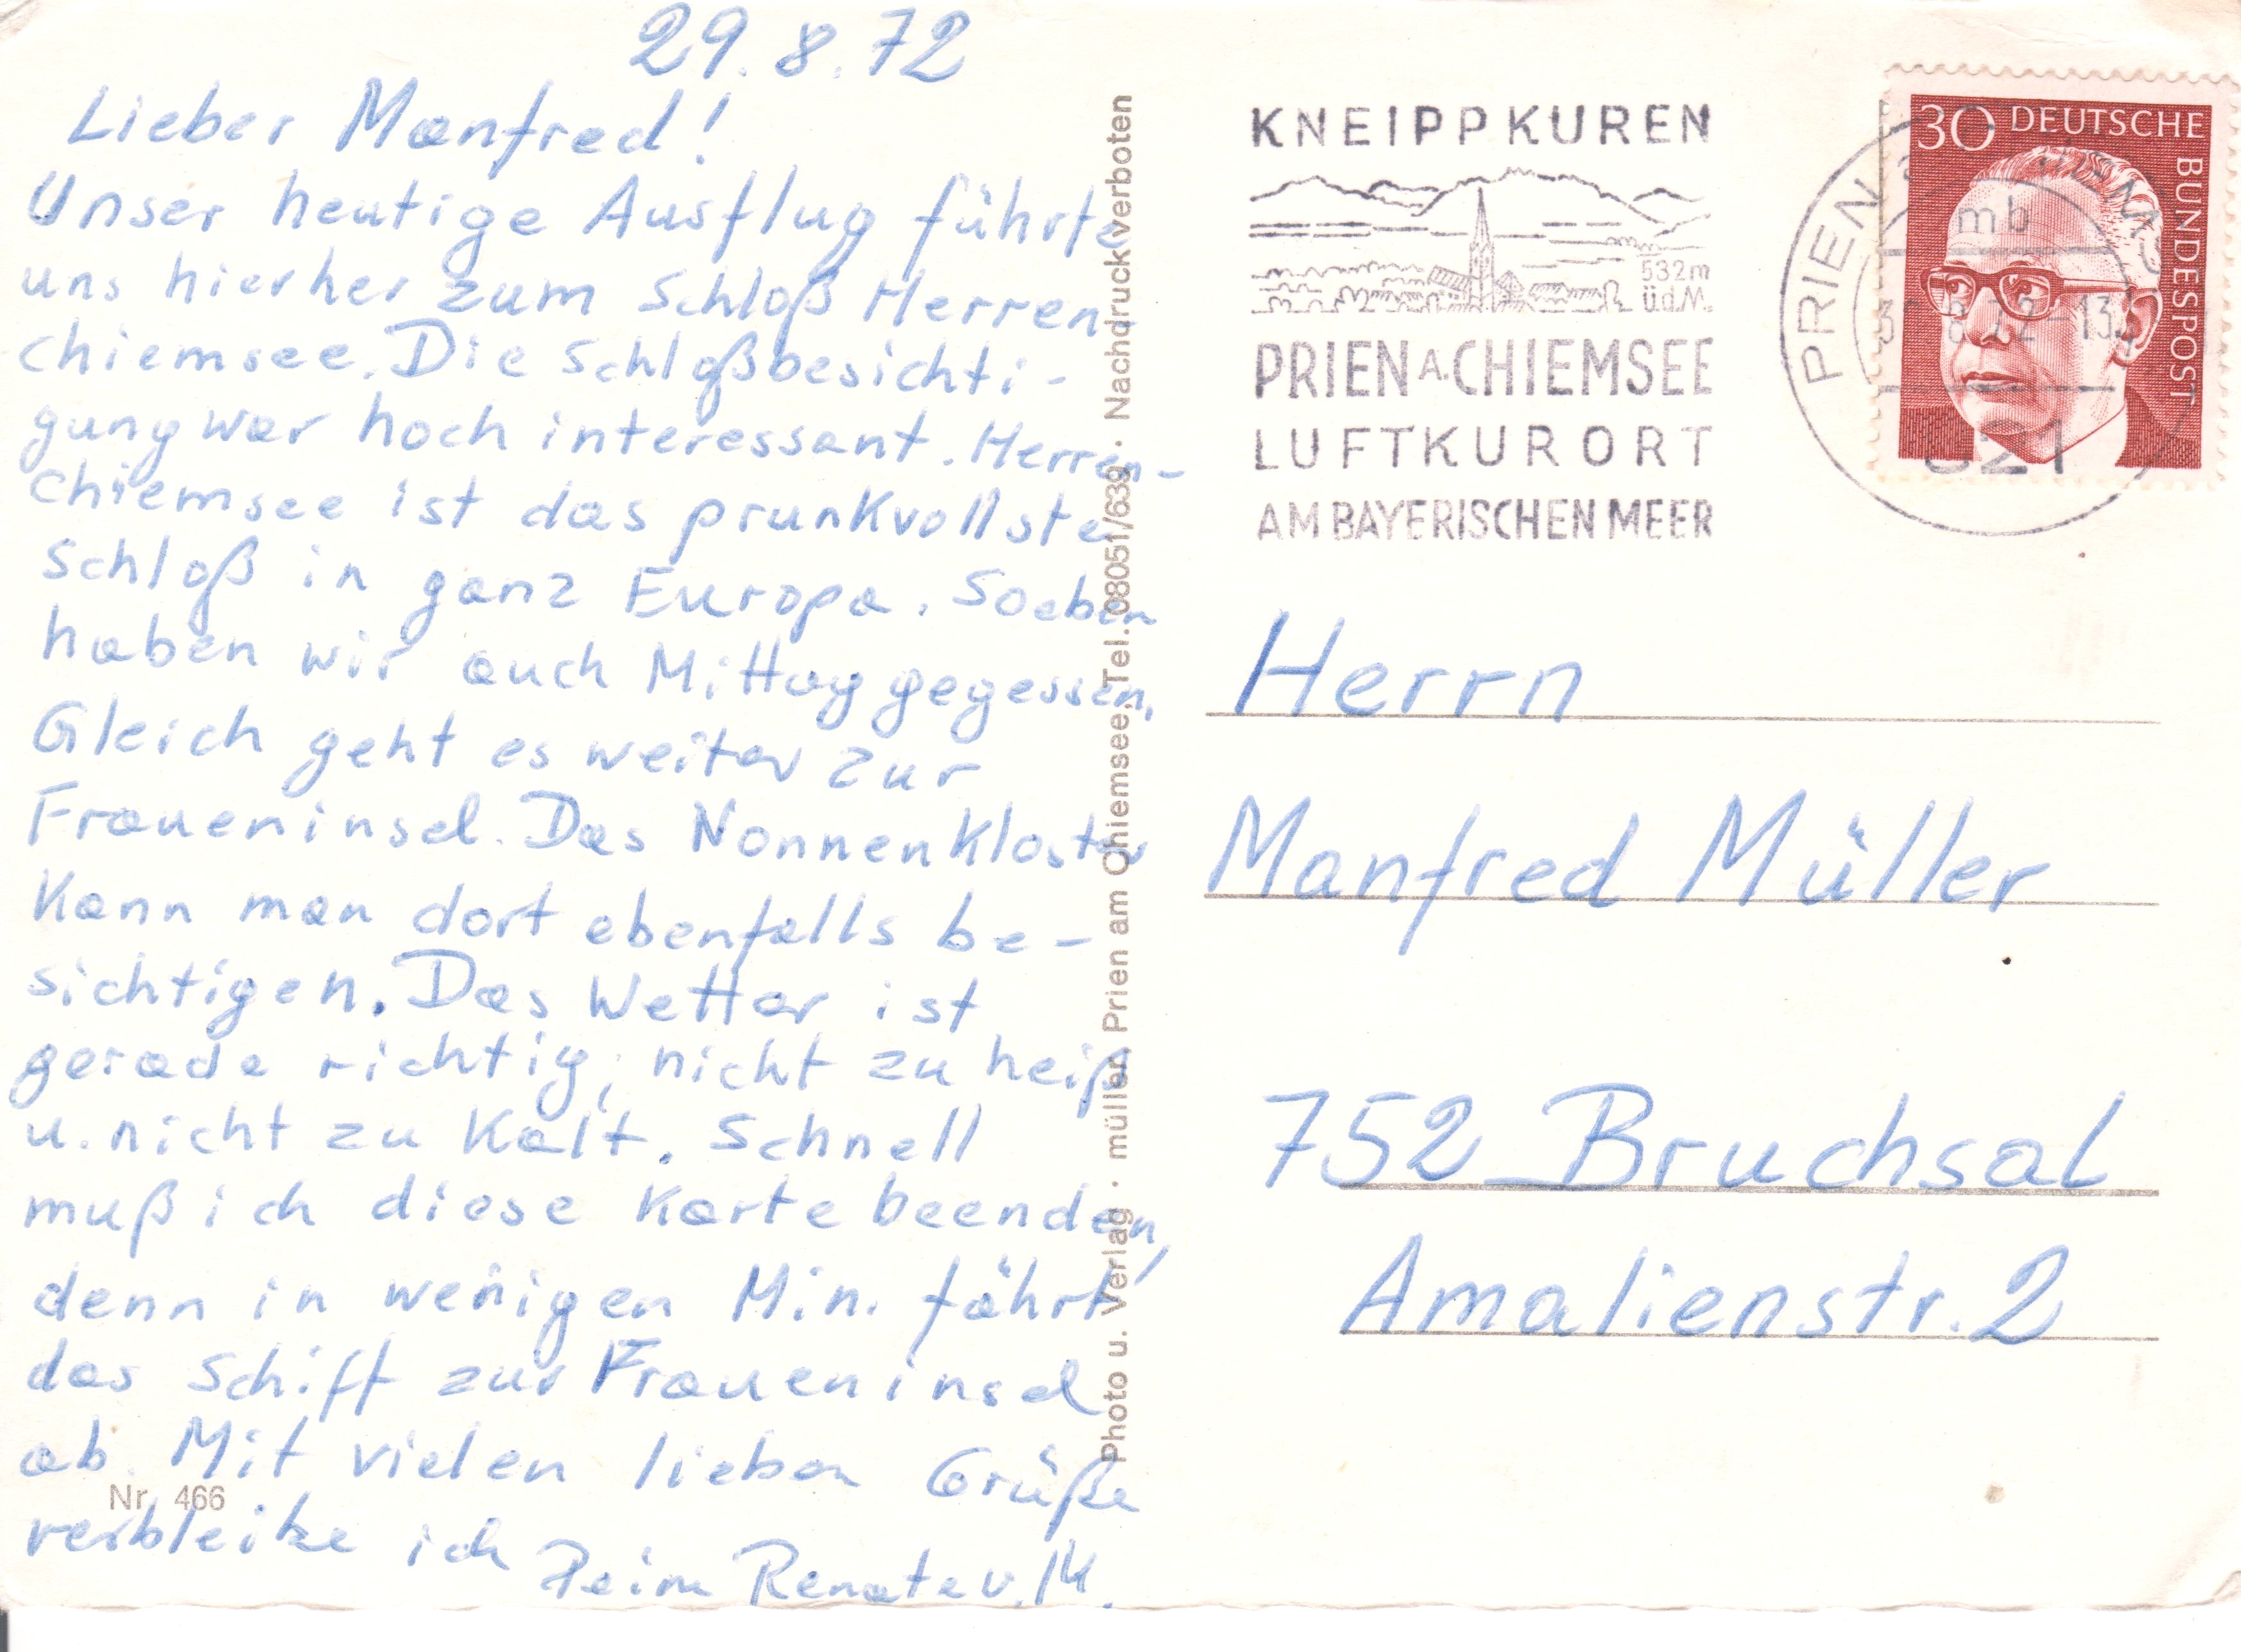 29.8.72
Lieber Manfred!
Unser heutige Ausflug führte
uns hierher zum Schloß Herren-
chiemsee. Die Schloßbesichti-
gung war hoch interessant. Herren-
chiemsee ist das prunkvollste
Schloß in ganz Europa. Soeben
haben wir auch Mittag gegessen.
Gleich geht es weiter zur
Fraueninsel. Das Nonnenkloster
kann man dort ebenfalls be-
sichtigen. Das Wetter ist
gerade richtig, nicht zu heiß
u. nicht zu kalt. Schnell
muß ich diese Karte beenden,
denn in wenigen Min. fährt
das Schiff zur Fraueninsel
ab. Mit vielen lieben Grüße
verbleibe ich Deine Renate u. M.
Nr. 466
Photo u. Verlag · müller, Prien am Chiemsee, Tel. 08051/639 · Nachdruck verboten
KNEIPPKUREN
532m
ü.d.M.
PRIEN A. CHIEMSEE
LUFTKURORT
AM BAYERISCHEN MEER
30 DEUTSCHE
BUNDESPOST
PRIEN
mb
8.72-13
821
Herrn
Manfred Müller
752 Bruchsal
Amalienstr. 2